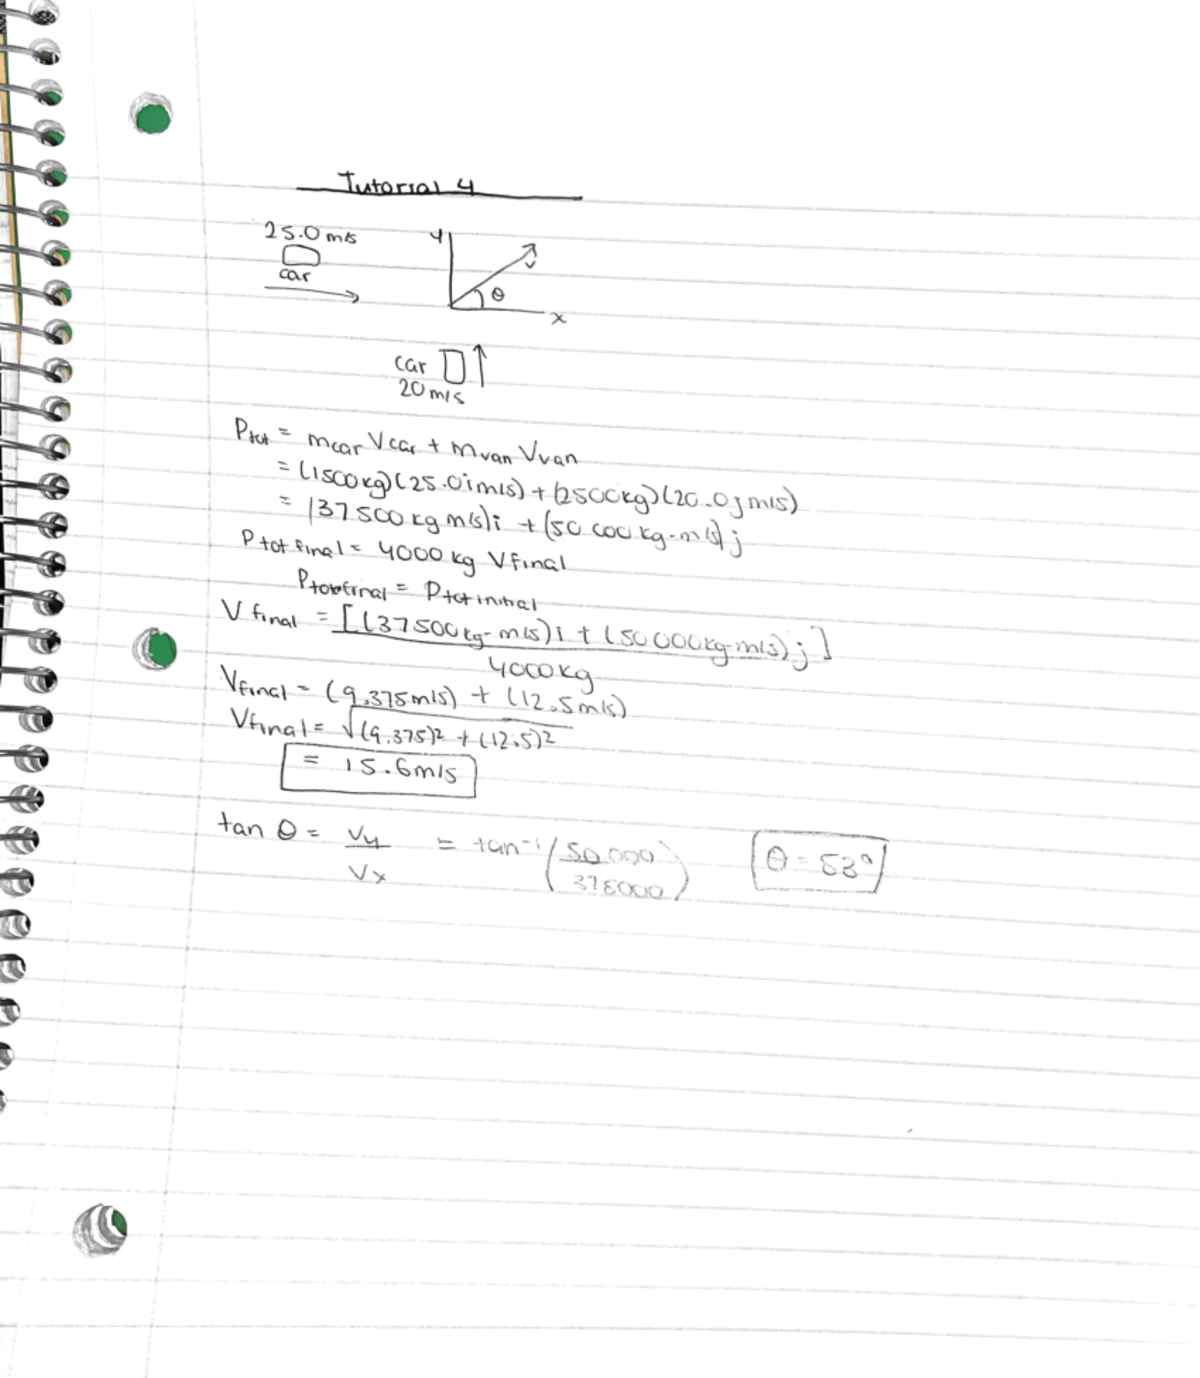 Tutorial 4
25.0 m/s
car
y
v
θ
x
car
20 m/s
Ptot = mcar Vcar + mvan Vvan
= (1500kg)(25.0i m/s) + (2500kg)(20.0j m/s)
= (37500 kg m/s)i + (50 000 kg-m/s)j
Ptot final = 4000 kg Vfinal
Ptot final = Ptot initial
Vfinal = [(37500kg-m/s)i + (50000kg-m/s)j]
4000kg
Vfinal = (9.375m/s) + (12.5m/s)
Vfinal = √(9.375)² + (12.5)²
= 15.6m/s
tan θ = Vy/Vx = tan⁻¹(50 000/375000) θ = 53°